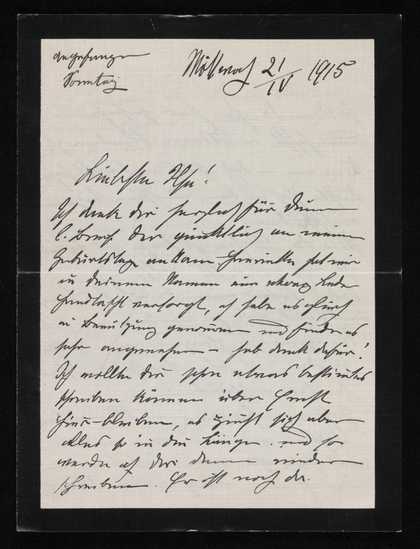 angefangen
Sonntag
Mittwoch 21/IV 1915
Liebster Ihr!
Ich danke dir herzlich für Deinen
l. Brief der pünktlich an meinem
Geburtstage ankam. Henriette hat mir
in Deinem Namen eine
Handtasche versorgt, ich habe es gleich
in Benützung genommen und finde es
sehr angenehm – hab Dank dafür!
Ich wollte dir schon etwas bestimmtes
schreiben können über Ernst
hier bleiben, es zieht sich aber
alles so in die Länge. und so
werde ich dir dann wieder
schreiben. Er ist noch da.